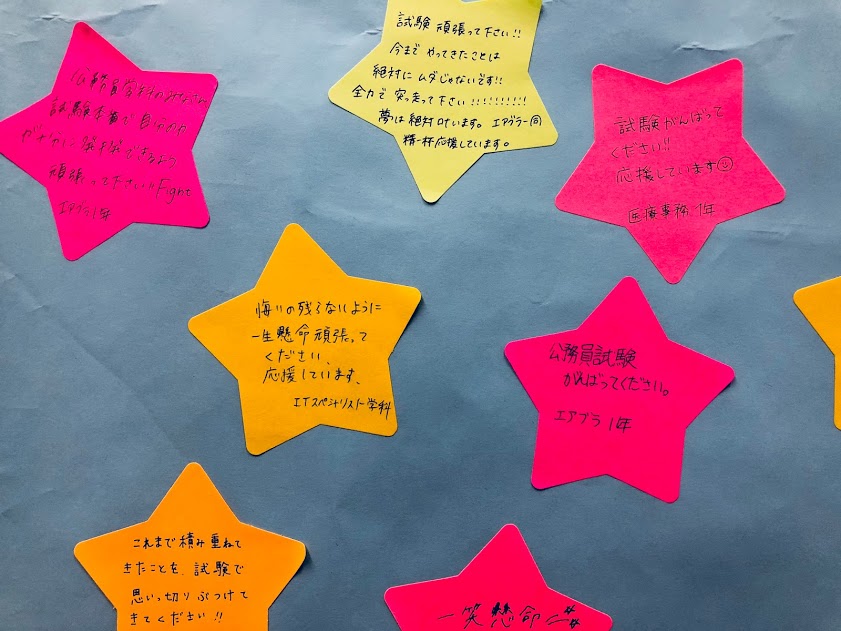 公務員学科のみなさん
試験本番で自分の力
が十分に発揮できるよう
頑張って下さい!! Fight
エアグラ1年
試験 頑張って下さい!!
今まで やってきたことは
絶対に ムダじゃないです!!
全力で 突っ走って下さい!!!!!!!!!!
夢は絶対叶います。エアグラ一同
精一杯応援しています。
試験がんばって
ください!!
応援しています☺
医療事務 1年
悔いの残らないように
一生懸命頑張って
ください、
応援しています、
ITスペシャリスト学科
公務員試験
がんばってください。
エアグラ 1年
これまで積み重ねて
きたことを、試験で
思いっ切り ぶつけて
きてください!!
一笑懸命